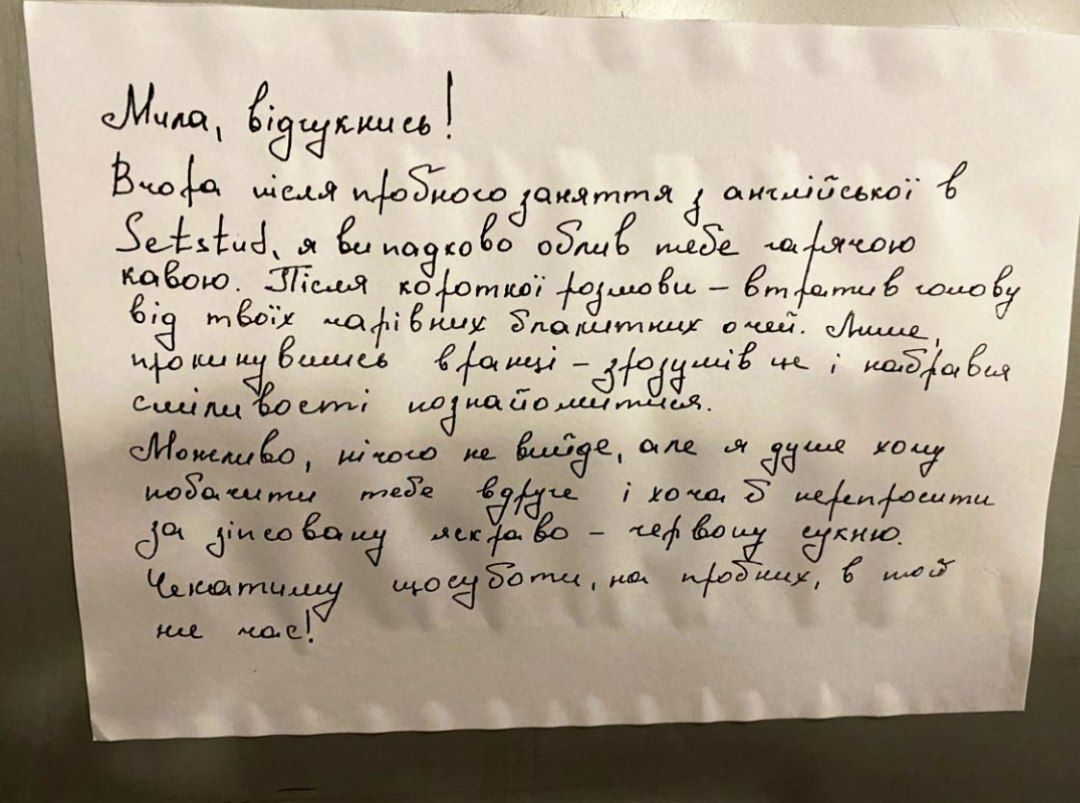 Мила, відгукнись!
Вчора після пробного заняття з англійської в
Setstud, я випадково облив тебе гарячою
кавою. Після короткої розмови – втратив голову
від твоїх чарівних блакитних очей. Лише,
прокинувшись вранці – зрозумів це і набрався
сміливості познайомитися.
Можливо, нічого не вийде, але я дуже хочу
побачити тебе вдруге і хоча б перепросити
за зіпсовану яскраво – червону сукню.
Чекатиму щосуботи, на пробних, в той
же час!